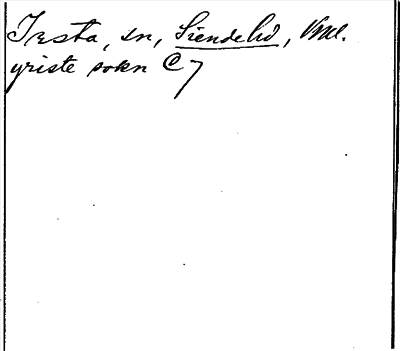 Testa, sn, Siendelid, Vml.
yriste sokn C 7